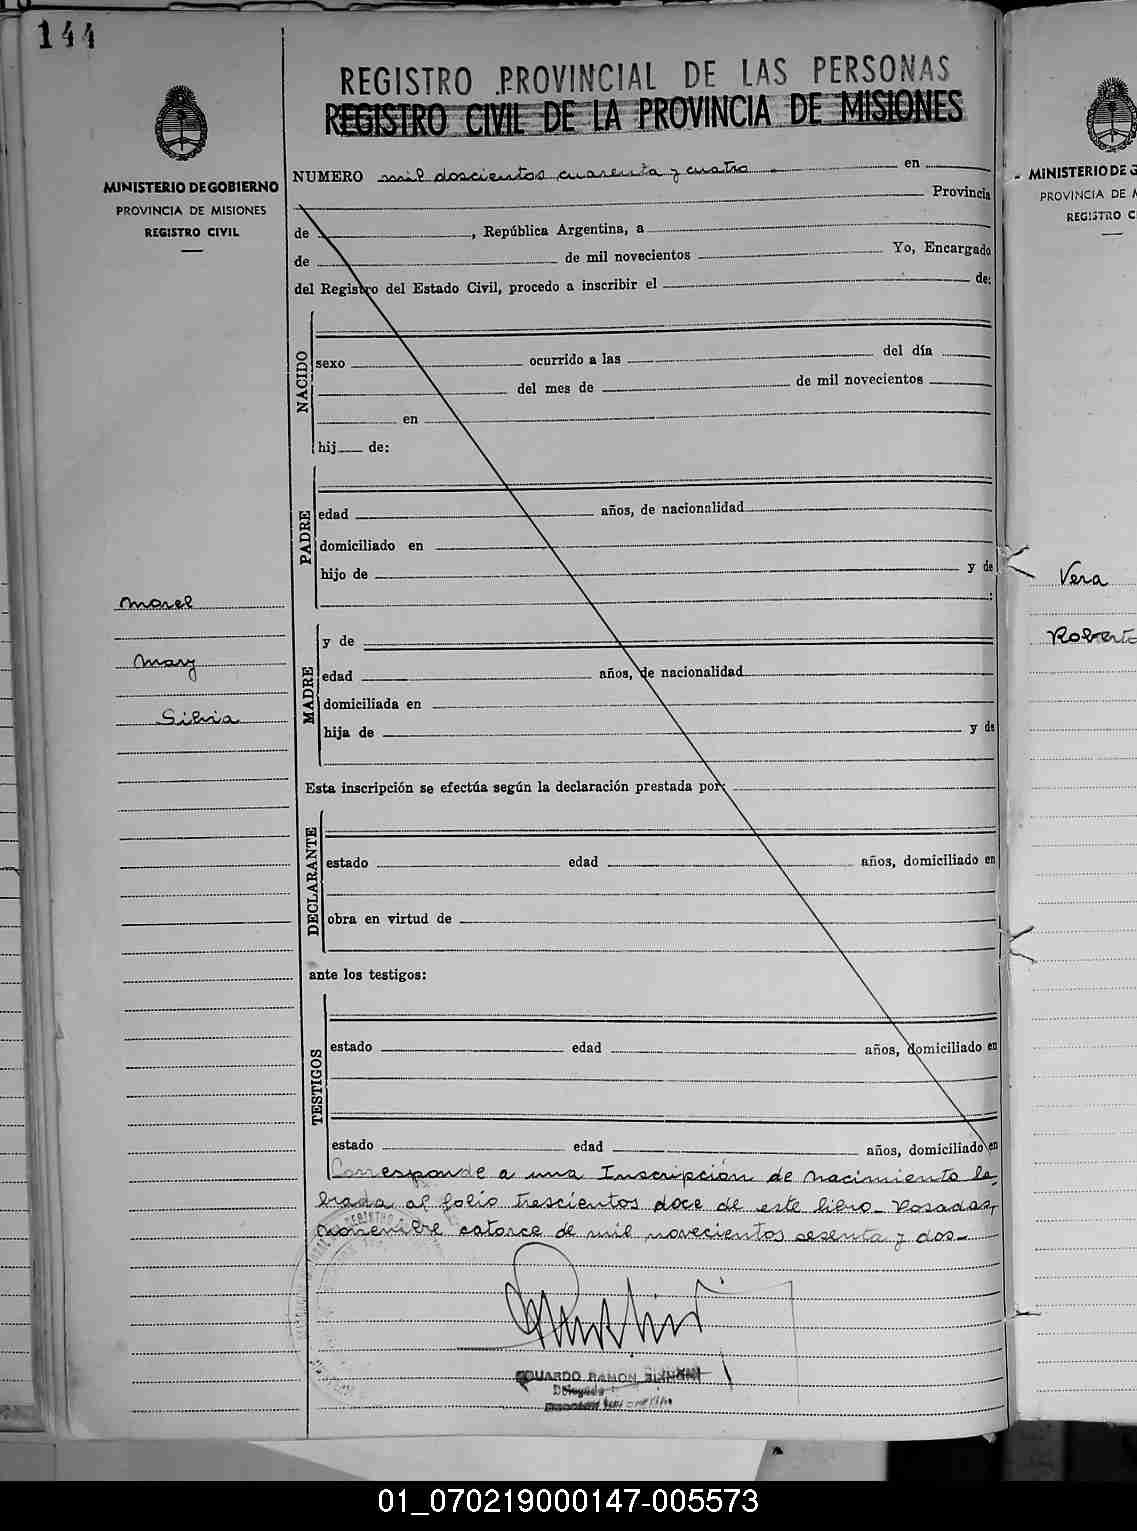 144
REGISTRO PROVINCIAL DE LAS PERSONAS
REGISTRO CIVIL DE LA PROVINCIA DE MISIONES
MINISTERIO DE GOBIERNO
PROVINCIA DE MISIONES
REGISTRO CIVIL
NUMERO mil doscientos cuarenta y cuatro en
Provincia
de , República Argentina, a
de de mil novecientos Yo, Encargado
del Registro del Estado Civil, procedo a inscribir el de:
NACIDO
sexo ocurrido a las del día
del mes de de mil novecientos
en
hij de:
PADRE
edad años, de nacionalidad
domiciliado en
hijo de y de
:
Morel
Mary
Silvia
MADRE
y de
edad años, de nacionalidad
domiciliada en
hija de y de
Esta inscripción se efectúa según la declaración prestada por:
DECLARANTE
estado edad años, domiciliado en
obra en virtud de
ante los testigos:
TESTIGOS
estado edad años, domiciliado en
estado edad años, domiciliado en
Corresponde a una Inscripción de nacimiento la-
brada al folio trescientos doce de este libro_ Posadas,
noviembre catorce de mil novecientos sesenta y dos_
EDUARDO RAMON
Delegado
MINISTERIO DE G
PROVINCIA DE M
REGISTRO C
Vera
Roberto
01_070219000147-005573